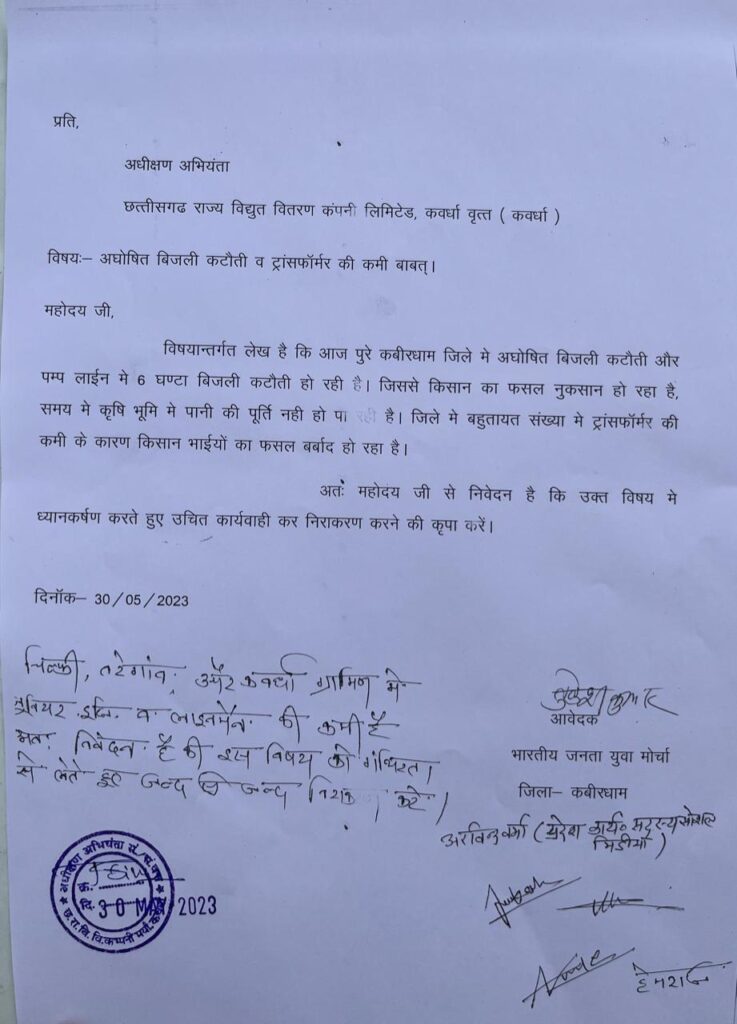 प्रति,
अधीक्षण अभियंता
छत्तीसगढ राज्य विद्युत वितरण कंपनी लिमिटेड, कवर्धा वृत्त ( कवर्धा )
विषयः– अघोषित बिजली कटौती व ट्रांसफॉर्मर की कमी बाबत्।
महोदय जी,
विषयान्तर्गत लेख है कि आज पुरे कबीरधाम जिले मे अघोषित बिजली कटौती और
पम्प लाईन मे 6 घण्टा बिजली कटौती हो रही है। जिससे किसान का फसल नुकसान हो रहा है,
समय मे कृषि भूमि मे पानी की पूर्ति नही हो पा रही है। जिले मे बहुतायत संख्या मे ट्रांसफॉर्मर की
कमी के कारण किसान भाईयों का फसल बर्बाद हो रहा है।
अतः महोदय जी से निवेदन है कि उक्त विषय मे
ध्यानकर्षण करते हुए उचित कार्यवाही कर निराकरण करने की कृपा करें।
दिनॉक– 30/05/2023
चिल्फी, तरेगांव, और कवर्धा ग्रामिण मे
जुनियर इंजि. व लाइनमैन की कमी है
अतः निवेदन है की इस विषय को
से लेते हुए जल्द से जल्द करे।
आवेदक
भारतीय जनता युवा मोर्चा
जिला– कबीरधाम
अरविन्द वर्मा (प्रदेश कार्य० सदस्य सोशल
मिडीया)
अधीक्षण अभियंता
क्र.
दि. 30 MAY 2023
हेमराज